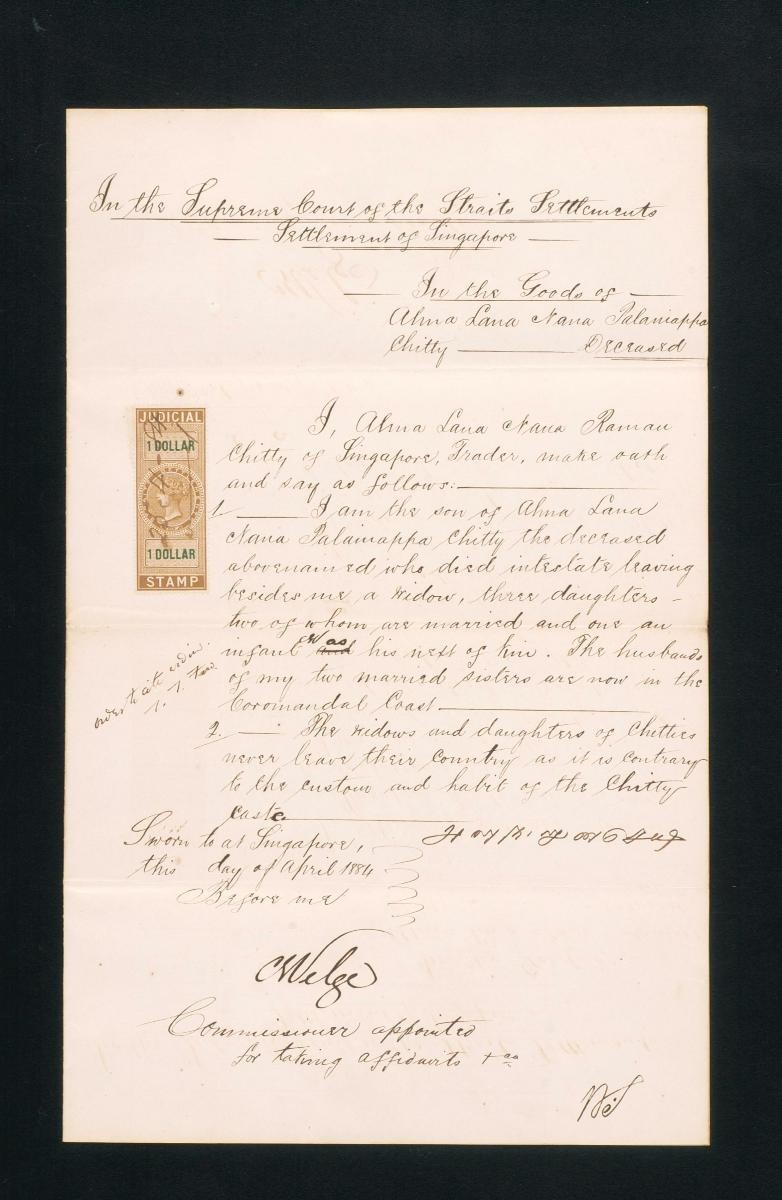 In the Supreme Court of the Straits Settlements
Settlement of Singapore
In the Goods of
Ahna Lana Nana Palaniappa
Chitty Deceased
JUDICIAL
1 DOLLAR
1 DOLLAR
STAMP
I, Ahna Lana Nana Raman
Chitty of Singapore, Trader, make oath
and say as follows:
1. I am the son of Ahna Lana
Nana Palaniappa Chitty the deceased
abovenamed who died intestate leaving
besides me a widow, three daughters -
two of whom are married and one an
infant as his next of kin. The husbands
of my two married sisters are now in the
Coromandal Coast
order to cite
2. The widows and daughters of Chitties
never leave their Country as it is contrary
to the custom and habit of the Chitty
caste
Sworn to at Singapore,
this day of April 1884
Before me
Commissioner appointed
for taking affidavits + ca